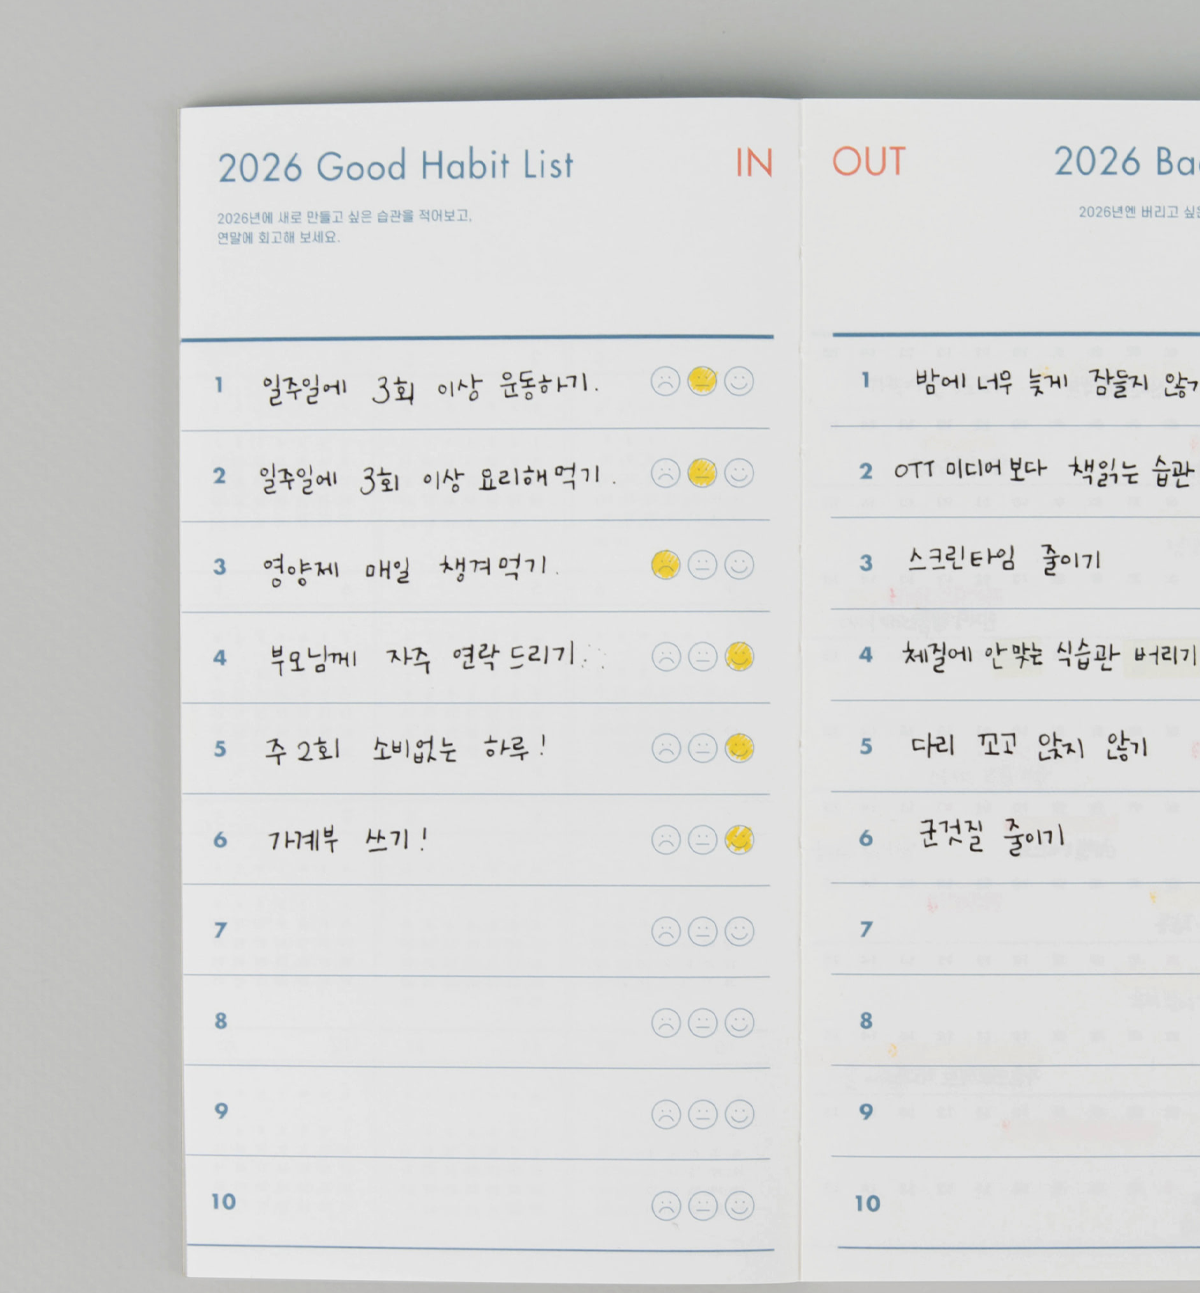 2026 Good Habit List
IN
2026년에 새로 만들고 싶은 습관을 적어보고,
연말에 회고해 보세요.
1 일주일에 3회 이상 운동하기.
2 일주일에 3회 이상 요리해먹기.
3 영양제 매일 챙겨먹기.
4 부모님께 자주 연락드리기.
5 주 2회 소비없는 하루!
6 가계부 쓰기!
7
8
9
10
OUT
2026 Ba
2026년엔 버리고 싶은
1 밤에 너무 늦게 잠들지 않기
2 OTT 미디어보다 책읽는 습관
3 스크린타임 줄이기
4 체질에 안맞는 식습관 버리기
5 다리 꼬고 앉지 않기
6 군것질 줄이기
7
8
9
10